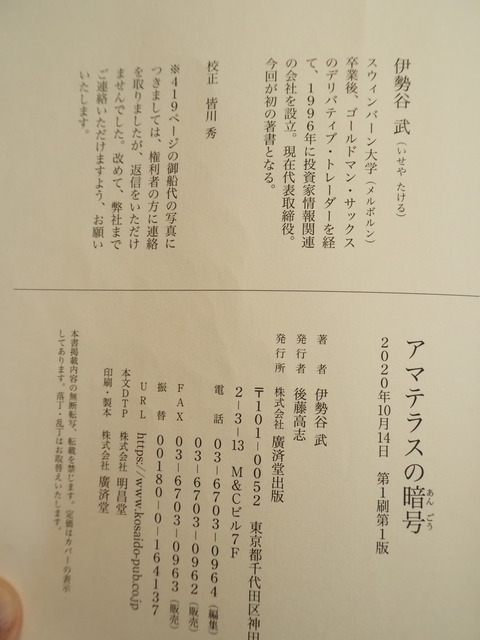 伊勢谷 武（いせや たける）
スウィンバーン大学（メルボルン）
卒業後、ゴールドマン・サックス
のデリバティブ・トレーダーを経
て、1996年に投資家情報関連
の会社を設立。現在代表取締役。
今回が初の著書となる。
校正 皆川 秀
※419ページの御船代の写真に
つきましては、権利者の方に連絡
を取りましたが、返信をいただけ
ませんでした。改めて、弊社まで
ご連絡いただけますよう、お願い
いたします。
アマテラスの暗号
あん ごう
2020年10月14日 第1刷第1版
著 者 伊勢谷 武
発行者 後藤高志
発行所 株式会社 廣済堂出版
〒101-0052 東京都千代田区神田
2-3-13 M&Cビル7F
電 話 03-6703-0964（編集）
03-6703-0962（販売）
FAX 03-6703-0963（販売）
振 替 00180-0-164137
URL https://www.kosaido-pub.co.jp
本文DTP 株式会社 明昌堂
印刷・製本 株式会社 廣済堂
本書掲載内容の無断転写、転載を禁じます。定価はカバーの表示
してあります。落丁・乱丁はお取替えいたします。